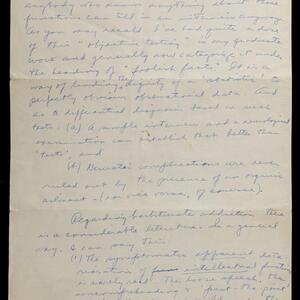 anybody who knows anything about those
functions can tell in an interview anyway
As you may recall I've had quite a dose
of this "objective testing" in my graduate
work and generally now categorize it under
the heading of "foolish facts" It is a
way of lending the dignity of a "statistic" to
perfectly obvious observational data. And
as to differential diagnosis based on such
tests: (a) A simple interview and a neurological
examination can establish that better than
"tests", and
(b) Dementia complications are never
ruled out by the presence of an organic
ailment - (or vice versa, of course).
Regarding barbiturate addiction there
is a considerable literature. In a general
way, I can say this
(1) the symptomatic apparent
of intellectual function
is rarely real. The loose speech, the
"past - the point"